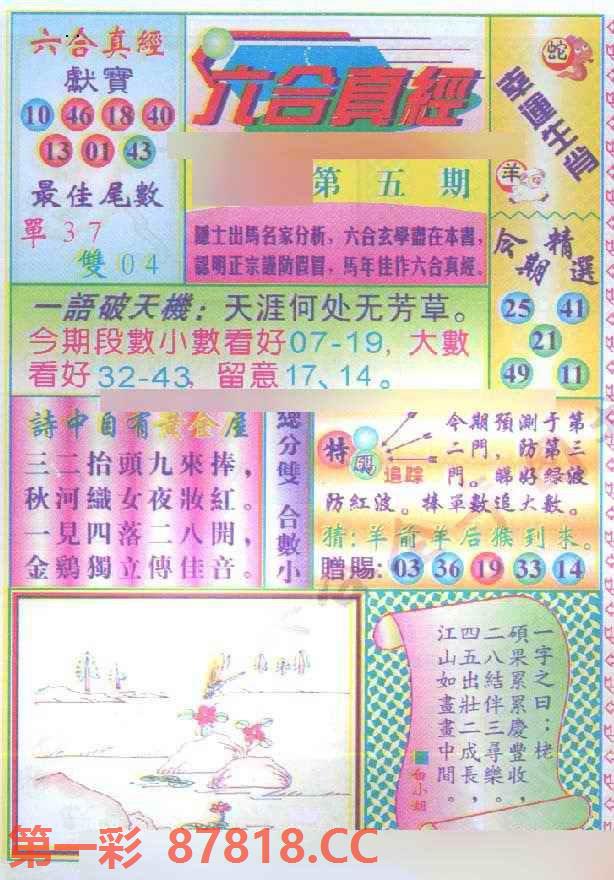 六合真經
獻寶
10 46 18 40
13 01 43
最佳尾數
單37
雙04
六合真經
第五期
隱士出馬名家分析,六合玄學盡在本書,
認明正宗謹防假冒,馬年佳作六合真經。
蛇
幸運生肖
羊
今期精選
25 41
21
49 11
一語破天機:天涯何处无芳草。
今期段數小數看好07-19,大數
看好32-43,留意17、14。
詩中自有黃金屋
三二抬頭九來捧,
秋河織女夜妝紅。
一見四落二八開,
金鷄獨立傳佳音。
總分雙 合數小
特碼追踪
今期預測于第
二門,防第三
門。睇好緑波
防紅波。捧單數追大數。
猜:羊前羊后猴到朱。
贈賜:03 36 19 33 14
一字之曰:栳
碩果累累慶豐收,
二八結伴三尋樂。
四五出壯二成長,
江山如畫畫中間。
白小姐
第一彩 87818.CC